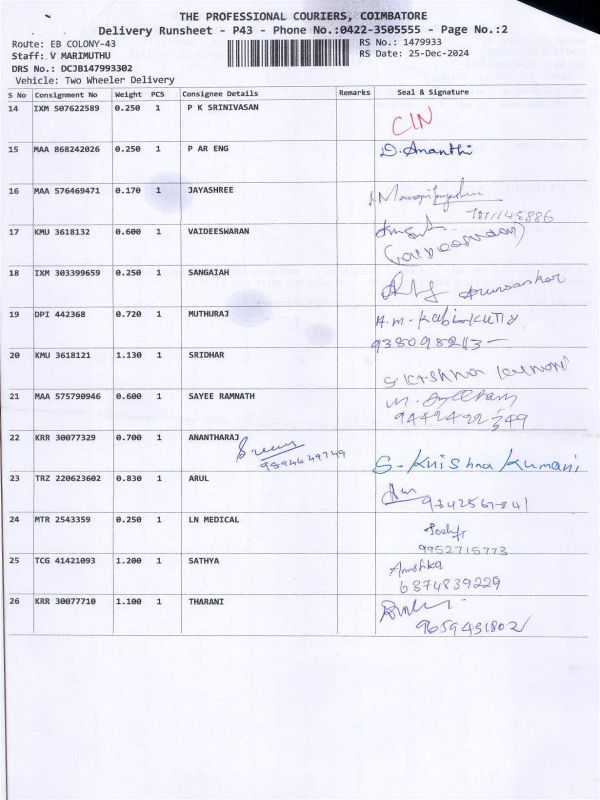 THE PROFESSIONAL COURIERS, COIMBATORE
Delivery Runsheet - P43 - Phone No.:0422-3505555 - Page No.:2
Route: EB COLONY-43
Staff: V MARIMUTHU
RS No.: 1479933
RS Date: 25-Dec-2024
DRS No.: DCJB147993302
Vehicle: Two Wheeler Delivery
S No Consignment No Weight PCS Consignee Details Remarks Seal & Signature
14 IXM 507622589 0.250 1 P K SRINIVASAN
CIN
15 MAA 868242026 0.250 1 P AR ENG D. Ananthi
16 MAA 576469471 0.170 1 JAYASHREE
17 KMU 3618132 0.600 1 VAIDEESWARAN
18 IXM 303399659 0.250 1 SANGAIAH
19 DPI 442368 0.720 1 MUTHURAJ
20 KMU 3618121 1.130 1 SRIDHAR
S. Krishna Kumari
21 MAA 575790946 0.600 1 SAYEE RAMNATH
22 KRR 30077329 0.700 1 ANANTHARAJ
9894649749
S. Krishna Kumari
23 TRZ 220623602 0.830 1 ARUL
24 MTR 2543359 0.250 1 LN MEDICAL
9952715773
25 TCG 41421093 1.200 1 SATHYA Anushka
6374839229
26 KRR 30077710 1.100 1 THARANI
9659431802